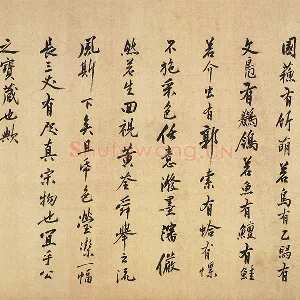 園蔬有竹萌若鳥有乙鶡有
文鳧有鸜鵒若魚有鱣有鮭
若介虫有郭索有蛤有螺
不施采色任意潑墨瀋儼
然若生回視黃筌舜舉之流
風斯下矣且帋色瑩潔一幅
長三丈有咫真宗物也宜乎公
之寶藏也歟